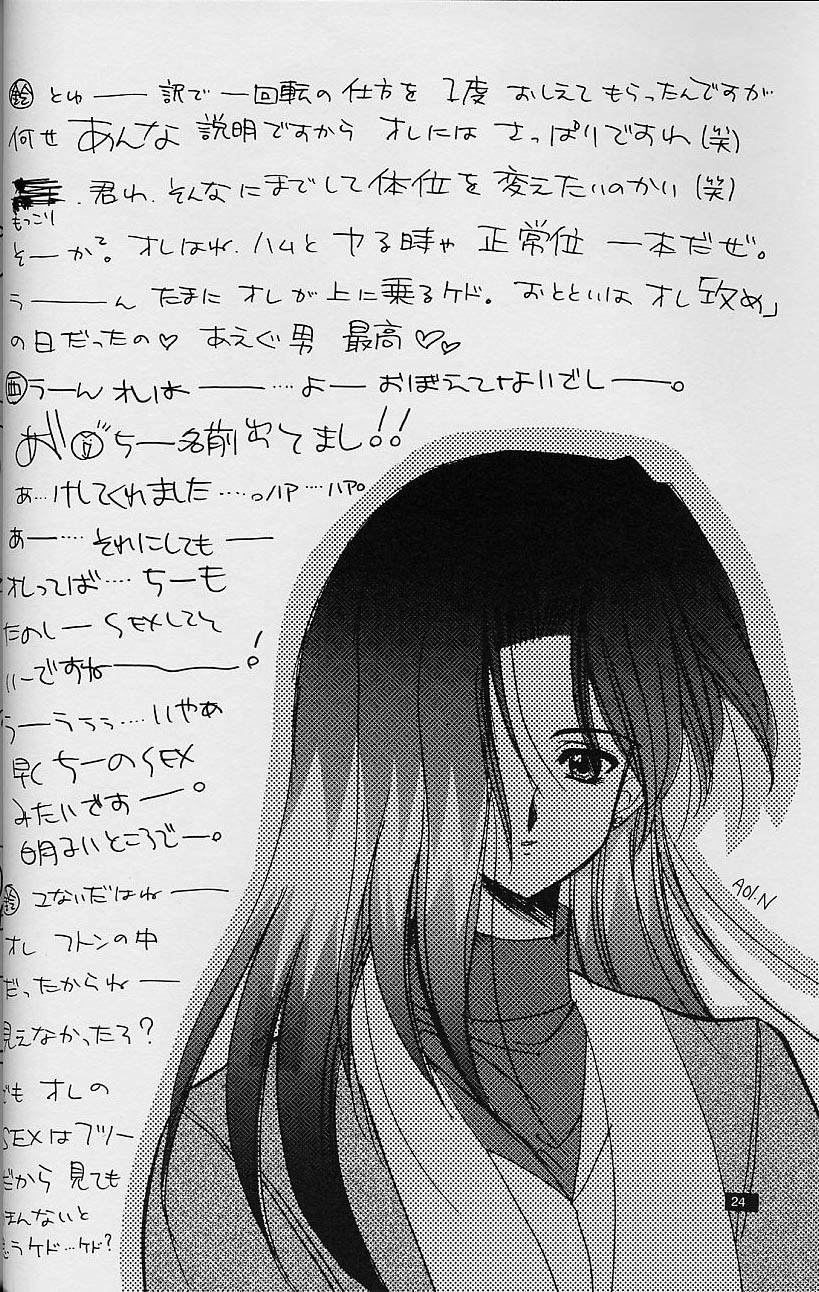 鈴 とゆ――訳で 一回転の仕方を 1度 おしえて もらったんですが
何せ あんな 説明ですから オレには さっぱりですわ(笑)
君わ、そんなにまでして 体位を 変えたいのかい(笑)
もっこり
そーか?。オレはね、ハムと ヤる時ゃ 正常位 一本だぜ。
う――――ん たまに オレが 上に乗るケド。おとといは オレ「攻め」
の日だったの♡ あえぐ男 最高♡♡
西 うーん オレは――…よー おぼえてないでしー。
ちー名前 出てまし!!
あ…けしてくれました….。ハア…ハア。
あー…. それにしても―
オレってば…. ちーも
たのしー SEXしてそ
いーですね――!
うーううぅ…. いやああ
早く ちーの SEX
みたいですー。
明るいところでー。
鈴 こないだはね―
オレ フトンの中
だったからね―
見えなかったろ?
でも オレの
SEXはフツー
だから 見ても
まんないと
思うケド…ケド?
AOI.N
24